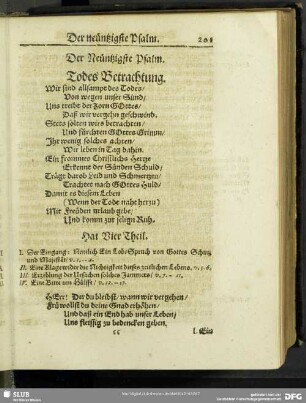 Der neüntzigste Psalm. 201
Der Neüntzigste Psalm.
Todes Betrachtung.
Wir sind allsampt des Todes/
Von wegen unser Sünd/
Uns treibt der Zorn GOttes/
Daß wir vergehn geschwind.
Stets solten wirs betrachten/
Und fürchten GOttes Grimm/
Ihr wenig solches achten/
Wir leben in Tag dahin.
Ein frommes Christlichs Hertz
Erkennt der Sünden Schuld/
Trägt darob Leid und Schmertzen/
Trachtet nach GOttes Huld/
Damit es diesem Leben
(Wenn der Tode naht herzu)
Mit Freüden urlaub gebe/
Und komm zur selign Ruh.
Hat Vier Theil.
I. Der Eingang: Nemlich Ein Lobe Spruch von Gottes Schutz
und Majestät/ v. 1.--4.
II. Eine Klage über die Nichtigkeit dieses zeitlichen Lebens. v. 5. 6.
III. Erzehlung der Uesachen solches Jammers/ v. 7.--11.
IV. Eine Bitte um Hülffe/ v. 12.--17.
HErr! Der du bleibst/ wann wir vergehen/
Fru wollst du deine Gnad erhöhen/
Und daß ein End hab unser Leben/
Uns fleissig zu bedencken geben.
Cc I. Ein
SLUB